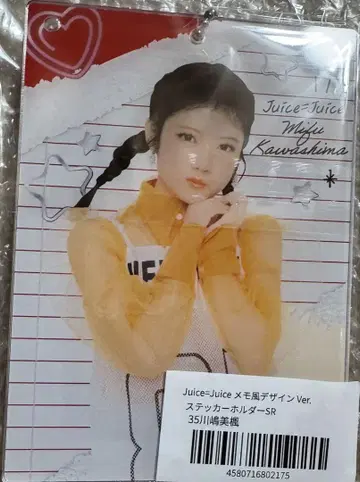 Juice=Juice
Mifu
Kawashima
Juice=Juice メモ風デザイン Ver.
ステッカーホルダーSR
35川嶋美楓
4580716802175